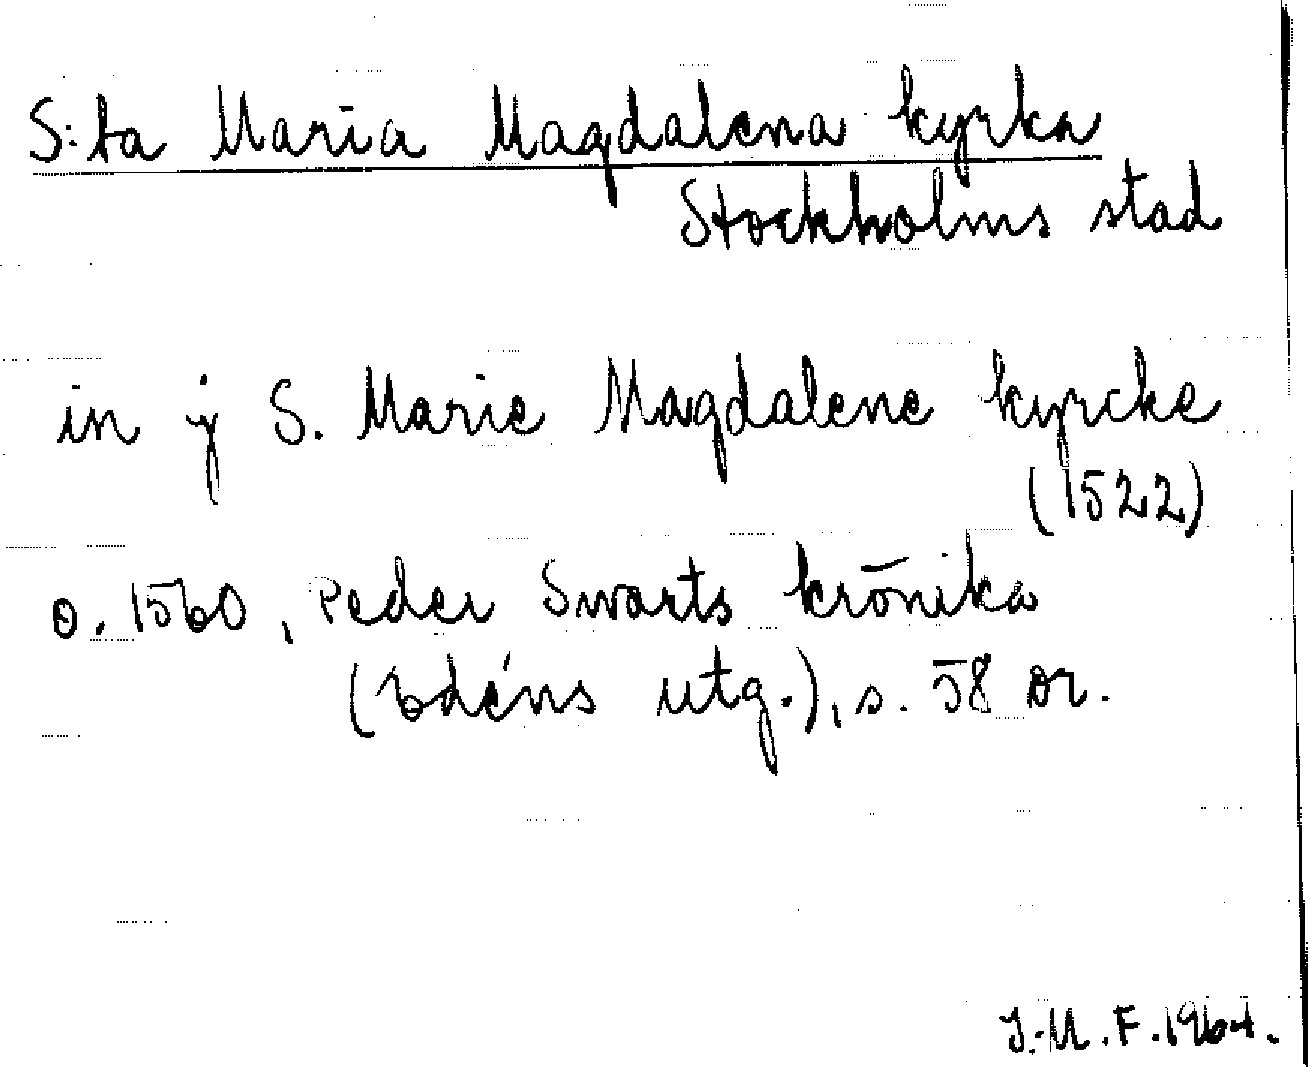 S:ta Maria Magdalena kyrka
Stockholms stad
in ÿ S. Marie Magdalene kyrcke
(1522)
o. 1560, Peder Swarts krönika
(Edéns utg.), s. 58 or.
J.M.F. 1964.